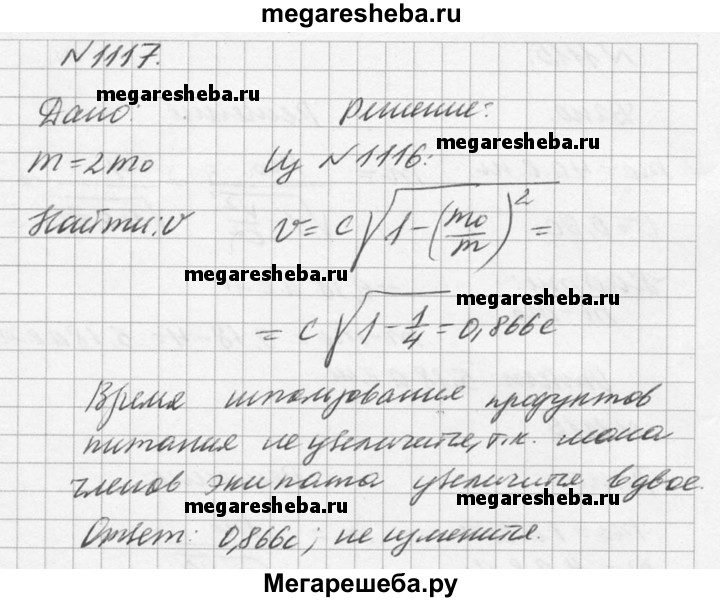 megaresheba.ru
N1117.
Дано: Решение:
megaresheba.ru
megaresheba.ru
m=2m₀ Из N1116:
Найти: v v = c√(1-(m₀/m)²) =
megaresheba.ru
megaresheba.ru
= c√(1-1/4) = 0,866c
Время использования продуктов
megaresheba.ru
питания не увеличится, т.к. масса
членов экипажа увеличится вдвое.
megaresheba.ru
megaresheba.ru
Ответ: 0,866c; не изменится.
Мегарешеба.ру